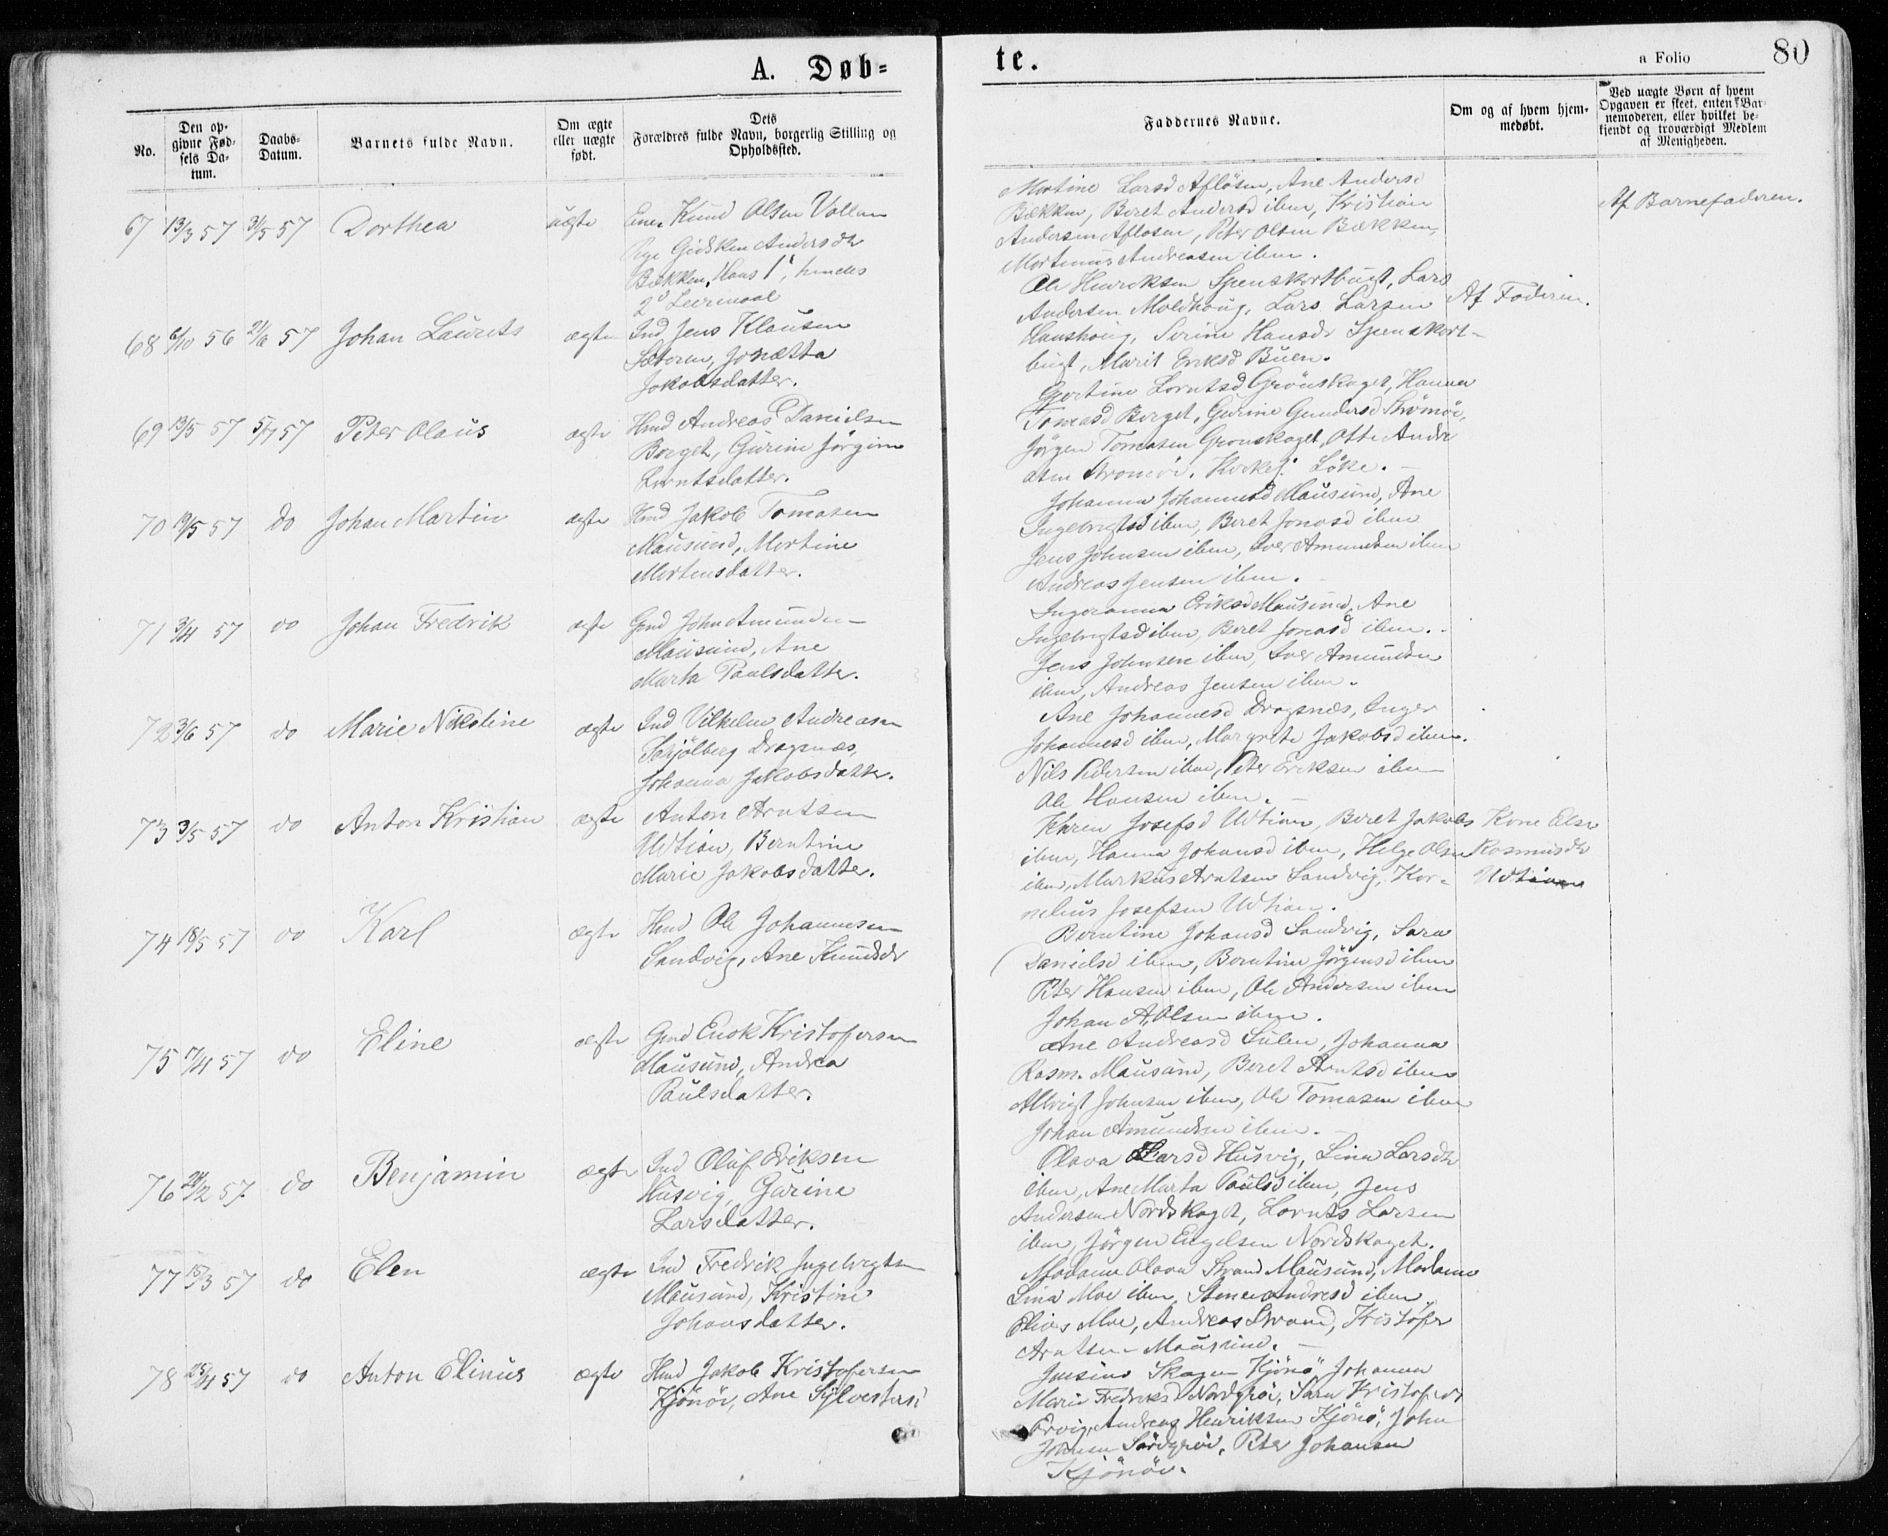 A. Døb=
te.
a Folio
80
No.
Den op-
givne Fød-
sels Da-
tum.
Daabs-
Datum.
Barnets fulde Navn.
Om ægte
eller uægte
født.
Dets
Forældres fulde Navn, borgerlig Stilling og
Opholdssted.
Faddernes Navne.
Om og af hvem hjem-
medøbt.
Ved uægte Børn af hvem
Opgaven er skeet, enten Bar-
nemoderen, eller hvilket be-
kjendt og troværdigt Medlem
af Menigheden.
67 13/3 57 3/5 57 Dorthea uægte
Knud Olsen Vollan
Pige Gidsken Andersdtr
Bækken, Hans 1', hendes
2' Leiermaal
Mortine Larsd Afløsen, Ane Andersd
Bækken, Beret Andersd ibm, Kristian
Andersen Afløsen, Peter Olsen Bækken,
Mortinus Andreasen ibm.
Af Barnefaderen.
68 6/10 56 21/6 57 Johan Laurits ægte
Ind Jens Klausen
Sæteren, Jonetta
Jakobsdatter.
Ole Henriksen Spenskortbugt, Lars
Andersen Moldhaug, Lars Larsen
Haushaug, Serine Hansdr Spenskort-
bugt, Marit Eriksd Buen.
Af Faderen.
69 13/5 57 5/7 57 Peter Olaus ægte
Hmd Andreas Danielsen
Borget, Gurine Jørgine
Lorntsdatter.
Gjertine Lorntsd Grønskaget, Hanna
Tomasd Borget, Gurine Gundersd Strømøi,
Jørgen Tomasen Grønskaget, Otte Andre
asen Strømøi. Løke. -
70 19/5 57 do Johan Martin ægte
Hmd Jakob Tomasen
Mausund, Mortine
Mortensdatter.
Johanna Johannesd Mausund, Ane
Ingebrigtsd ibm, Beret Jonasd ibm
Jens Johnsen ibm, Iver Amundsen ibm
Andreas Jensen ibm.
71 3/4 57 do Johan Fredrik ægte
Gmd John Amundsen
Mausund, Ane
Marta Paulsdatter.
Ingeranna Eriksd Mausund, Ane
Ingebrigtsd ibm, Beret Jonasd ibm.
Jens Johnsen ibm, Iver Amundsen
ibm, Andreas Jensen ibm.
72 3/6 57 do Marie Nikoline ægte
Ind Vilhelm Andreasen
Schjølberg Dragsnæs,
Johanna Jakobsdatter.
Ane Johannesd Dragsnæs, Inger
Johannesd ibm, Margrete Jakobsd ibm.
Nils Pedersen ibm, Peter Eriksen ibm
Ole Hansen ibm. -
73 3/5 57 do Anton Kristian ægte
Anton Arntsen
Udtian, Berntine
Marie Jakobsdatter.
Karen Josefsd Udtian, Beret Jakobs
ibm, Hanna Johansd ibm, Helge Olsen
ibm, Markus Arntsen Sandvig, Kor-
nelius Josefsen Udtian.
Kone Else
Rasmusdr
Udtian
74 18/5 57 do Karl ægte
Hmd Ole Johannesen
Sandvig, Ane Knudsdr
Berntine Johansd Sandvig, Sara
Danielsd ibm, Berntine Jørgensd ibm
Peter Hansen ibm, Ole Andersen ibm
Johan A. Olsen ibm.
75 17/4 57 do Eline ægte
Gmd Enok Kristofersen
Mausund, Andrea
Paulsdatter.
Ane Andreasd Sulen, Johanna
Rasm. Mausund, Beret Arntsd ibm
Albrigt Johnsen ibm, Ole Tomasen ibm
Johan Amundsen ibm. -
76 24/2 57 do Benjamin ægte
Ind Oluf Eriksen
Husvig, Gurine
Larsdatter.
Olava Larsd Husvig, Lina Larsdtr
ibm, Ane Marta Paulsd ibm, Jens
Andersen Nordskaget, Lornts Larsen
ibm, Jørgen Engelsen Nordskaget.
77 15/3 57 do Elen ægte
Ind Fredrik Ingebrigtsen
Mausund, Kristine
Johansdatter.
Madame Olava Strand Mausund, Madame
Lina Moe ibm, Andresd ibm,
Elias Moe, Andreas Strand, Kristofer
Arntsen Mausund. -
78 25/4 57 do Anton Elinus ægte
Hmd Jakob Kristofersen
Kjønøi, Ane Sylvestersd
Jensine Skagen Kjønø, Johanna
Marie Fredriksd Nordgrøi, Sara Kristofersd
Ervig, Andreas Henriksen Kjønø, John
Johnsen Sørdyrøi, Peter Johansen
Kjønøi.